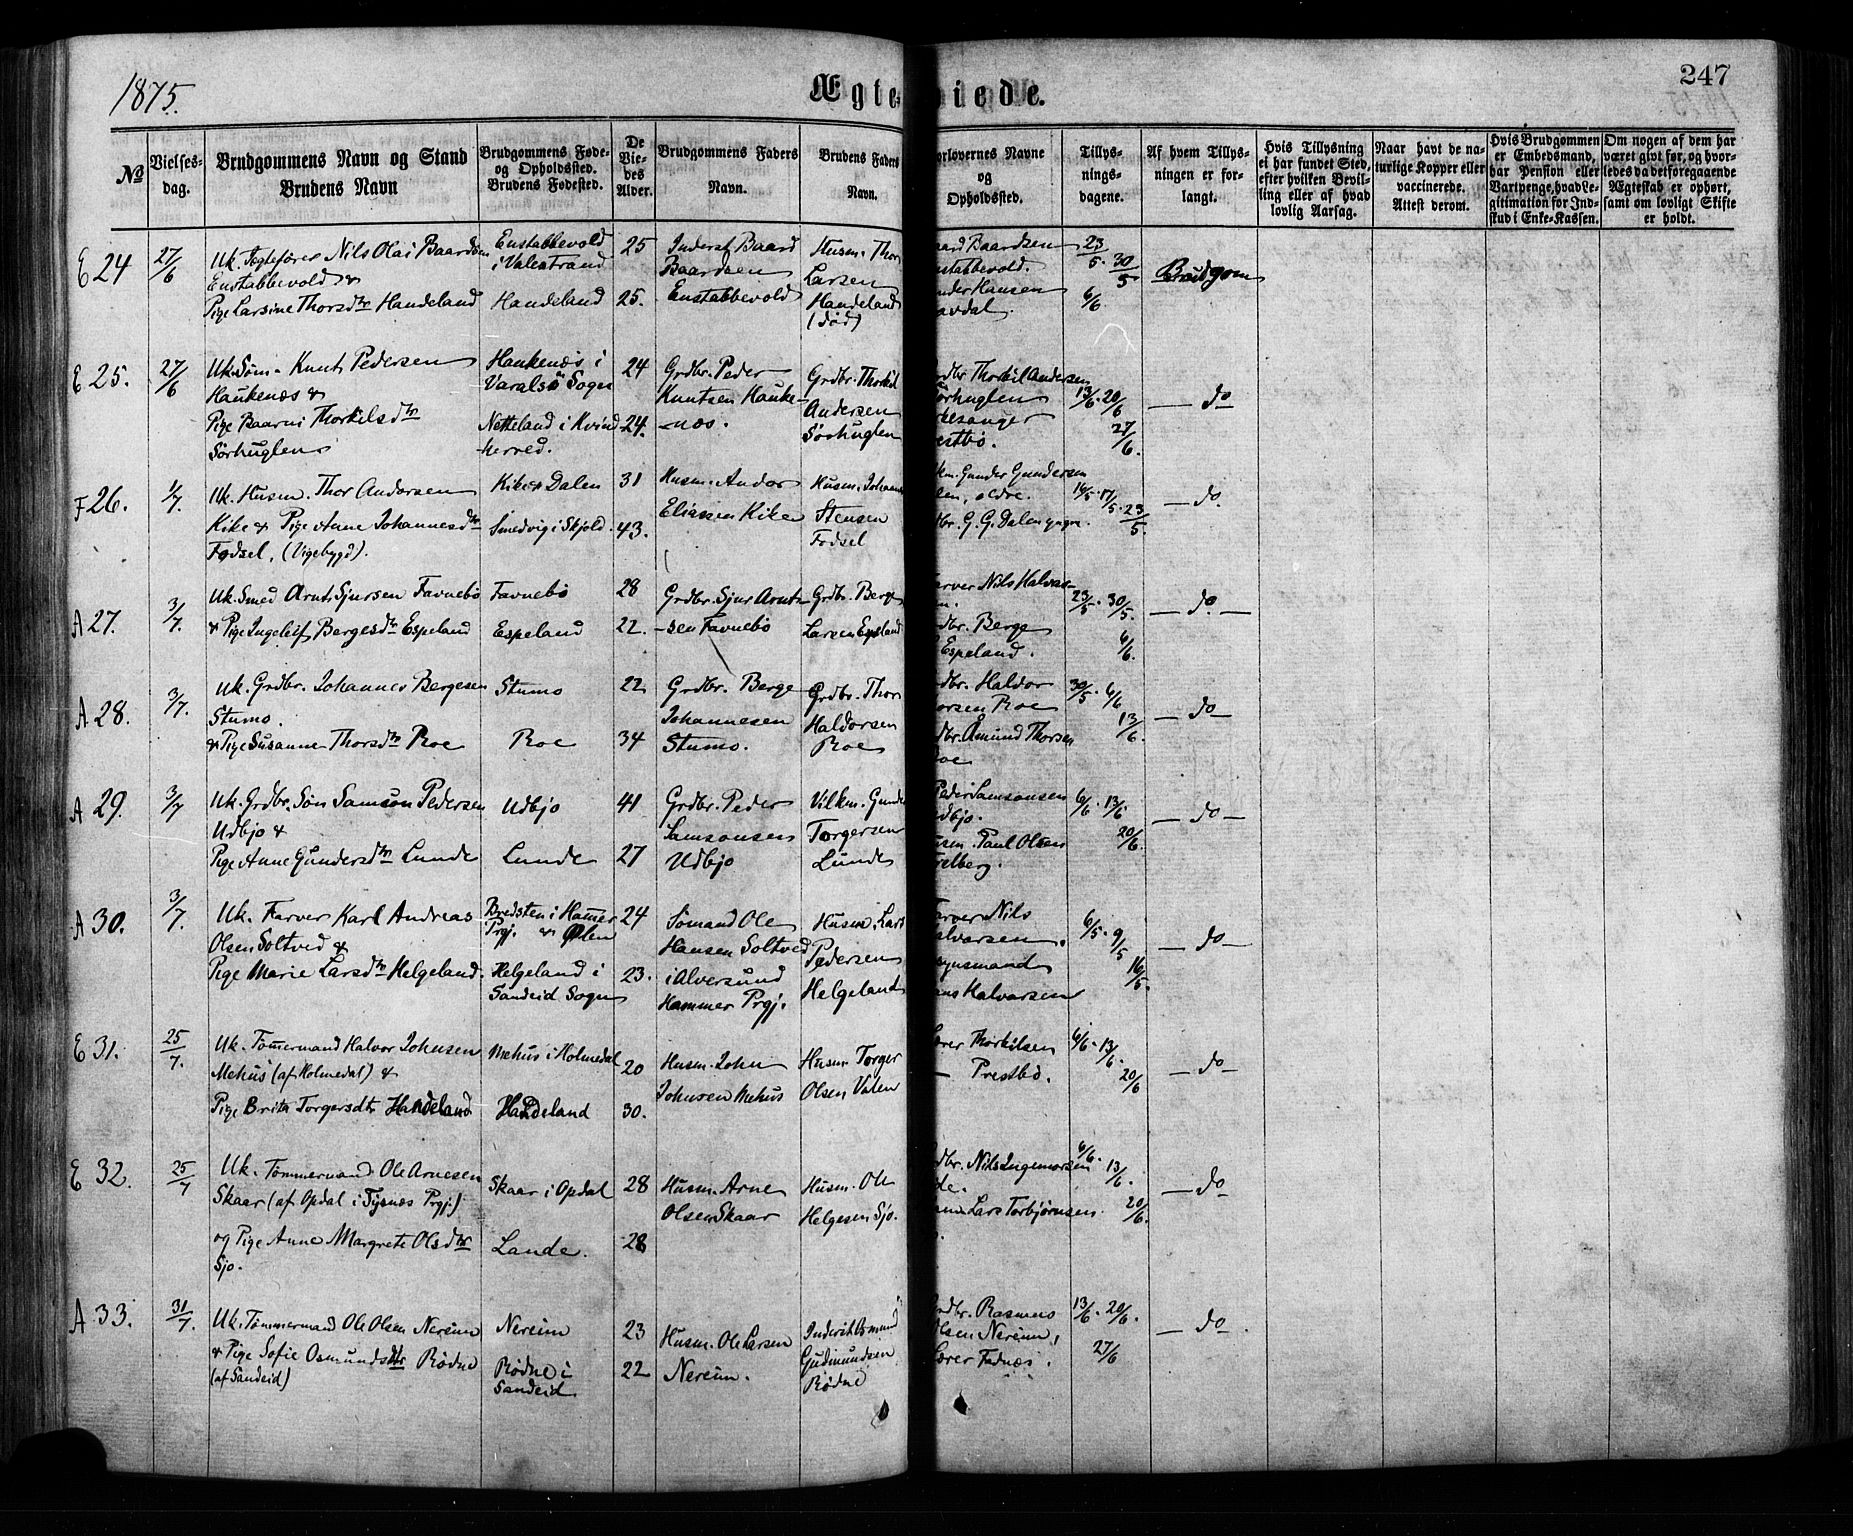 1875.
Ægte viede.
247
No
Vielses-
dag.
Brudgommens Navn og Stand
Brudens Navn
Brudgommens Føde-
og Opholdssted.
Brudens Fødested.
De
Vie-
des
Alder.
Brudgommens Faders
Navn.
Brudens Faders
Navn.
orlovernes Navne
og
Opholdssted.
Tillys-
nings-
dagene.
Af hvem Tillys-
ningen er for-
langt.
Hvis Tillysning
ei har fundet Sted,
efter hvilken Bevil-
ling eller af hvad
lovlig Aarsag.
Naar havt de na-
turlige Kopper eller
vaccinerede.
Attest derom.
Hvis Brudgommen
er Embedsmand,
har Pension eller
Vartpenge, hvad Le-
gitimation for Ind-
skud i Enke-Kassen.
Om nogen af dem har
været givt før, og hvor-
ledes da det foregaaende
Ægteskab er ophørt,
samt om lovligt Skifte
er holdt.
E 24
27/6
Uk. Nils Olai Baardsen
Enstabbevold &
Pige Larsine Thorsdtr Handeland
Enstabbevold
i Valestrand
Handeland
25
25.
Inderst Baard
Baardsen
Enstabbevold
Husm. Thor
Larsen
Handeland
(død)
aard Baardsen
nstabbevold.
nder Hansen
avdal.
23/5. 30/5
6/6
Brudgom
E 25.
27/6
Uk. Søm. Knut Pedersen
Haukenæs &
Pige Baarni Thorkilsdtr
Sørhuglen
Haukenæs i
Varalsö Sogn
Netteland i Kvind-
herred.
24
24.
Grdbr. Peder
Knutsen Hauke-
-næs.
Grdbr. Thorkil
Andersen
Sörhuglen
rdbr Thorkil Andersen
Sörhuglen
rkesanger
restbö.
13/6. 20/6
27/6.
do
F 26.
1/7.
Uk. Husm. Thor Andorsen
Kike & Pige Anne Johannesdtr
Fodsel, (Vigebygd).
Kike Dalen
Smedvig i Skjold.
31
43.
Husm. Andor
Eliassen Kike
Husm. Johannes
Stensen
Fodsel
km. Gunder Gundersen
len, ældre.
dbr. G. G. Dalen yngre.
16/5. 17/5. 23/5.
do
A 27.
3/7.
Uk. Smed Arnt Sjursen Favnebö
& Pige Ingeleif Bergesdtr Espeland
Favnebö
Espeland
28
22.
Grdbr. Sjur Arnt-
-sen Favnebö
Grdbr. Berge
Larsen Espeland
arver Nils Halvar-
n.
dbr. Berge
Espeland.
23/5. 30/5.
6/6.
do
A 28.
3/7.
Uk. Grdbr. Johannes Bergesen
Stumo.
& Pige Susanne Thorsdtr Roe
Stumo
Roe
22
34
Grdbr. Berge
Johannesen
Stumo.
Grdbr. Thor
Haldorsen
Roe
dbr. Haldor
orsen Roe
dbr. Åmund Thorsen
Roe
30/5. 6/6
13/6.
do
A 29.
3/7
Uk. Grdbr. Søn Samson Pedersen
Udbjo &
Pige Anne Gundersdtr Lunde
Udbjo
Lunde
41
27
Grdbr. Peder
Samsonsen
Udbjo
Vilkm. Gunder
Torgersen
Lunde
Peder Samsonsen
Udbjo.
usm. Paul Olsen
relberg.
6/6. 13/6.
20/6.
do
A 30.
3/7.
Uk. Farver Karl Andreas
Olsen Soltved &
Pige Marie Larsdtr Helgeland.
Bredsten i Hamer
Prgj. & Ølen
Helgeland i
Sandeid Sogn
24
23.
Sømand Ole
Hansen Soltved
i Alversund
Hammer Prgj.
Husm. Lars
Pedersen
Helgeland
Farver Nils
alvarsen.
synsmand
ans Halvarsen
6/5. 9/5
16/5.
do
E 31.
25/7.
Uk. Tømermand Halvor Johnsen
Mehus (af Holmedal) &
Pige Brita Torgersdtr Handeland
Mehus i Holmedal
Handeland
20
30.
Husm. John
Johnsen Mehus
Husm. Torger
Olsen Vaten
Lærer Thorkilsen
Prestbö.
6/6. 13/6.
20/6
do
E 32.
25/7
Uk. Tømmermand Ole Arnesen
Skaar (af Opdal i Tysnæs Prgj.)
og Pige Anne Margrete Olsdtr
Sjo.
Skaar i Opdal
Lande.
28
28
Husm. Arne
Olsen Skaar
Husm. Ole
Helgesen Sjo.
dbr. Nils Ingemorsen
de.
Lars Torbjørnsen
6/6. 13/6.
20/6.
do
A 33.
31/7.
Uk. Tømmermand Ole Olsen Nereim
& Pige Sofie Osmundsdtr Rödne
(af Sandeid)
Nereim
Rödne i
Sandeid
23
22
Husm. Ole Larsen
Nereim.
Inderst Osmund
Gudmundsen
Rödne
Grdbr. Rasmus
Olsen Nereim,
Lærer Fadnæs.
13/6. 20/6.
27/6
do